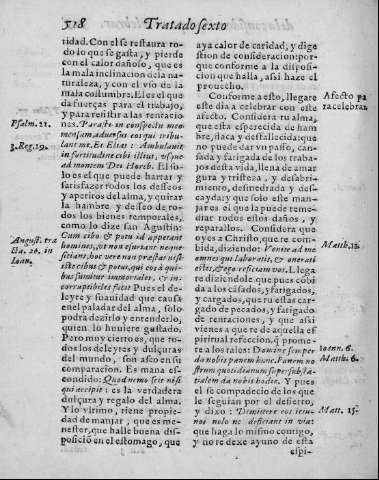 518
Tratado sexto
ridad. Con el se restaura to-
do lo que se gasta, y pierde
con el calor dañoso, que es
la mala inclinacion de la na-
turaleza, y con el vso de la
mala costumbre. El es el que
da fuerças para el trabajo,
y para resistir a las tentacio
nes. Parasti in conspectu meo
mensam, aduersus eos qui tribu-
lant me. Et Elias: Ambulauit
in fortitudine cibi illius, vsque
ad montem Dei Horeb. El so-
lo es el que puede hartar y
satisfazer todos los desseos
y apetitos del alma, y quitar
la hambre y desseo de to-
dos los bienes temporales,
como lo dize san Agustin:
Cum cibo & potu id appetant
homines, vt non esuriant neque
sitiant, hoc vere non præstat nisi
iste cibus & potus, qui eos à qui-
bus sumitur immortales, & in-
corruptibiles facit Pues el de-
leyte y suauidad que causa
en el paladar del alma, solo
podra dezirlo y entenderlo,
quien lo huuiere gustado.
Pero muy cierto es, que to-
dos los deleytes y dulçuras
del mundo, son asco en su
comparacion. Es mana es-
condido: Quod nemo scit nisi
qui accipit: es la verdadera
dulçura y regalo del alma.
Y lo vltimo, tiene propie
dad de manjar, que es me-
nester, que halle buena dis-
posició en el estomago, que
Psalm. 22.
3. Reg. 19.
August. tra
cta. 26. in
Ioan.
aya calor de caridad, y dige
stion de consideracion: por-
que conforme a la disposi-
cion que halla, assi haze el
prouecho.
Conforme a esto, llegare
este dia a celebrar con este
afecto. Considera tu alma,
que esta perecida de ham-
bre, flaca y desfallecida: que
no puede dar vn passo, can-
sada y fatigada de los traba
jos desta vida, llena de amar
gura y tristeza, y desabri-
miento, desmedrada y des-
cayda: y que solo este man-
jar es el que la puede reme-
diar todos estos daños, y
repararlos. Considera que
oyes a Christo, que te com-
bida, diziendo: Venite ad me
omnes qui laboratis, & onerati
estis, & ego reficiam vos. Llega
te diziendole que pues cobi
da a los cãsados, y fatigados,
y cargados, que tu estas car-
gado de pecados, y fatigado
de tentaciones, y que assi
vienes a que te de aquella es
piritual refeccion, q̃ prome-
te a los tales: Domine semper
da nobis panem hunc. Panem no
strum quotidianum supersubstã
tialem da nobis hodie. Y pues
el se compadecio de los que
le seguian por el desierto,
y dixo: Dimittere eos ieiu-
nos nolo ne deficiant in via:
que haga lo mismo contigo,
y no te dexe ayuno de esta
espi-
Afecto pa
ra celebrar.
Matth. 11.
Ioann. 6.
Matth. 6.
Mat. 15.